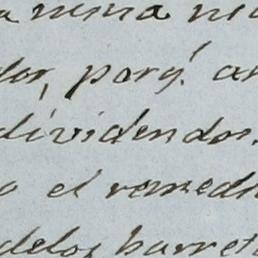 a ninia
dor, porq.^e an
dividendos.
o el remedi
delos barret